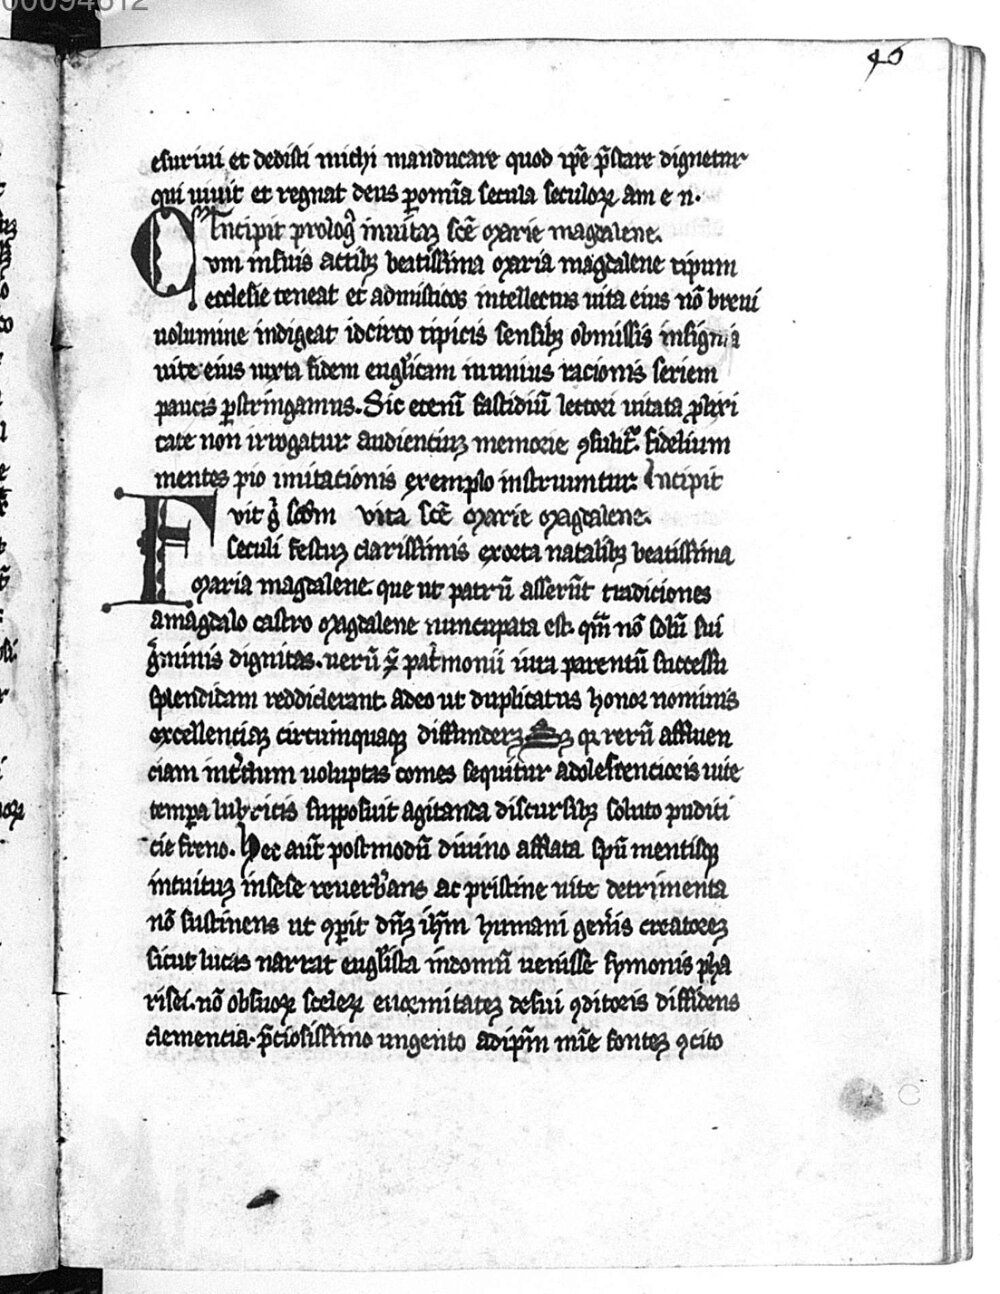 40
esuriui et dedisti michi manducare quod ip̄e p̄stare dignetur
qui viuit et regnat deus p̱ om̄ia secula seculoꝝ am e n.
Incipit prologꝰ in uitaꝫ sc̄e marie magdalene.
Cum in suis actibꝫ beatissima maria magdalene tipum
ecclesie teneat et ad misticos intellectus uita eius nō breui
uolumine indigeat idcirco tipicis sensibꝫ obmissis insignia
uite eius iuxta fidem eugl̄icam in unius racionis seriem
paucis p̱stringamus. Sic eteni̅ fastidiū lectori uitata ꝓlixi
tate non irrogatur audienciuꝫ memorie ꝯsulit᷑ fidelium
mentes pio imitacionis exemplo instruuntur. Incipit
vita sc̄e marie magdalene.
Fuit gͥ scd̄m
seculi festuꝫ clarissimis exorta natalibꝫ beatissima
maria magdalene. que ut patrū asserūt tradiciones
a magdalo castro magdalene nuncupata est. qm̄ nō solū sui
gͥminis dignitas. uerū ⁊ pat̄monii iura parentū successu
splendidam reddiderant. adeo ut duplicatus honor nominis
excellenciaꝫ circumquaqꝫ diffunderꝫ qꝛ rerū affluen
ciam int̄dum uoluptas comes sequitur adolescencioris uite
temp̱a lubricis supposuit agitanda discursibꝫ soluto pudici
cie freno. Hec aut̄ postmodū diuino afflata spū mentisqꝫ
intuituꝫ in sese reuerb̄ans ac pristine uite detrimenta
nō sustinens ut ꝯperit dn̄ꝫ ih̄m humani gen̄is creatoreꝫ
sicut lucas narrat eugl̄ista in domū uenisse symonis pha
risei. nō ob suoꝝ sceleꝝ enormitateꝫ de sui ꝯditoris diffidens
clemencia. p̄ciosissimo ungento adip̄m mīe fonteꝫ ꝯcito